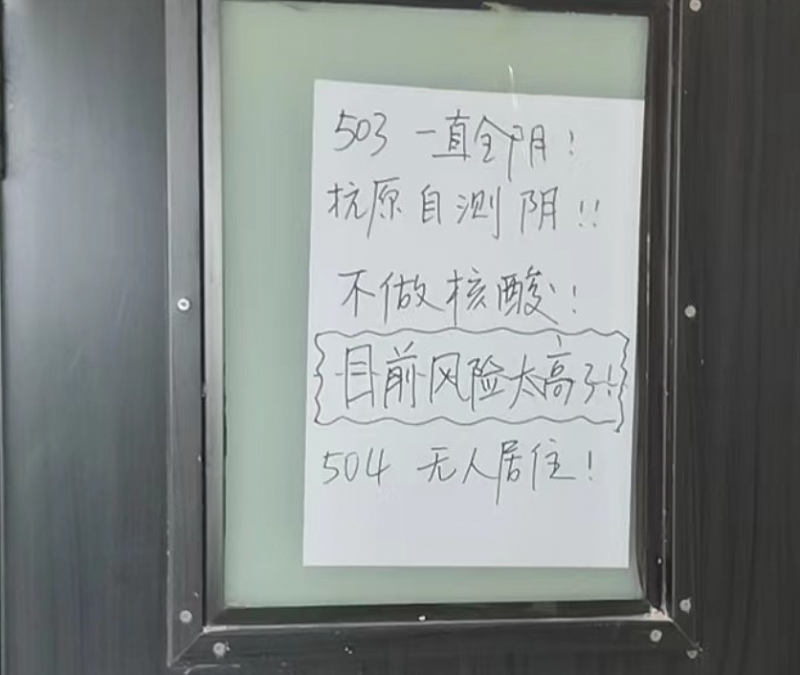 503 一直全阴！
抗原自测阴！！
不做核酸！
目前风险太高了！
504 无人居住！